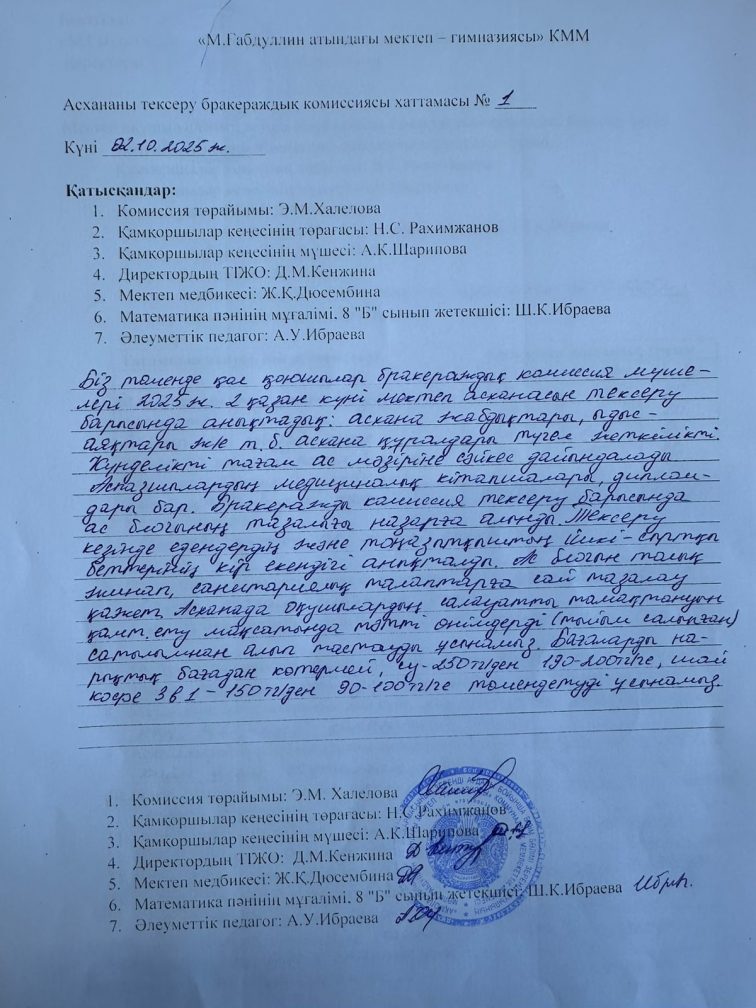 «М.Ғабдуллин атындағы мектеп – гимназиясы» КММ
Асхананы тексеру бракераждық комиссиясы хаттамасы № 1
Күні 02.10.2025 ж.
Қатысқандар:
1. Комиссия төрайымы: Э.М.Халелова
2. Қамқоршылар кеңесінің төрағасы: Н.С. Рахимжанов
3. Қамқоршылар кеңесінің мүшесі: А.К.Шарипова
4. Директордың ТІЖО: Д.М.Кенжина
5. Мектеп медбикесі: Ж.Қ.Дюсембина
6. Математика пәнінің мұғалімі, 8 "Б" сынып жетекшісі: Ш.К.Ибраева
7. Әлеуметтік педагог: А.У.Ибраева
Біз төменде қол қоюшылар бракераждық комиссия мүше-
лері 2025 ж. 2 қазан күні мектеп асханасын тексеру
барысында анықтадық: асхана жабдықтары, ыдыс-
аяқтары және т.б. асхана құралдары түгел жеткілікті.
Күнделікті тағам ас мәзіріне сәйкес дайындалады
Аспазшылардың медициналық кітапшалары, диплом-
дары бар. Бракеражды комиссия тексеру барысында
ас блогының тазалығы назарға алынды. Тексеру
кезінде едендердің және тоңазытқыштың ішкі-сыртқы
беттерінің кір екендігі анықталды. Ас блогын толық
жинап, санитариялық талаптарға сай тазалау
қажет. Асханада оқушылардың салауатты тамақтануын
қамт. ету мақсатында тәтті өнімдерді (тыйым салынған)
сатылымнан алып тастауды ұсынамыз. Бағаларды на-
рықтық бағадан көтермей, су-250тг/ден 190-200тг/ге, шай
кофе 3в1 – 150тг/ден 90-100тг/ге төмендетуді ұсынамыз.
1. Комиссия төрайымы: Э.М. Халелова
2. Қамқоршылар кеңесінің төрағасы: Н.С.Рахимжанов
3. Қамқоршылар кеңесінің мүшесі: А.К.Шарипова
4. Директордың ТІЖО: Д.М.Кенжина
5. Мектеп медбикесі: Ж.Қ.Дюсембина
6. Математика пәнінің мұғалімі, 8 "Б" сынып жетекшісі: Ш.К.Ибраева
7. Әлеуметтік педагог: А.У.Ибраева